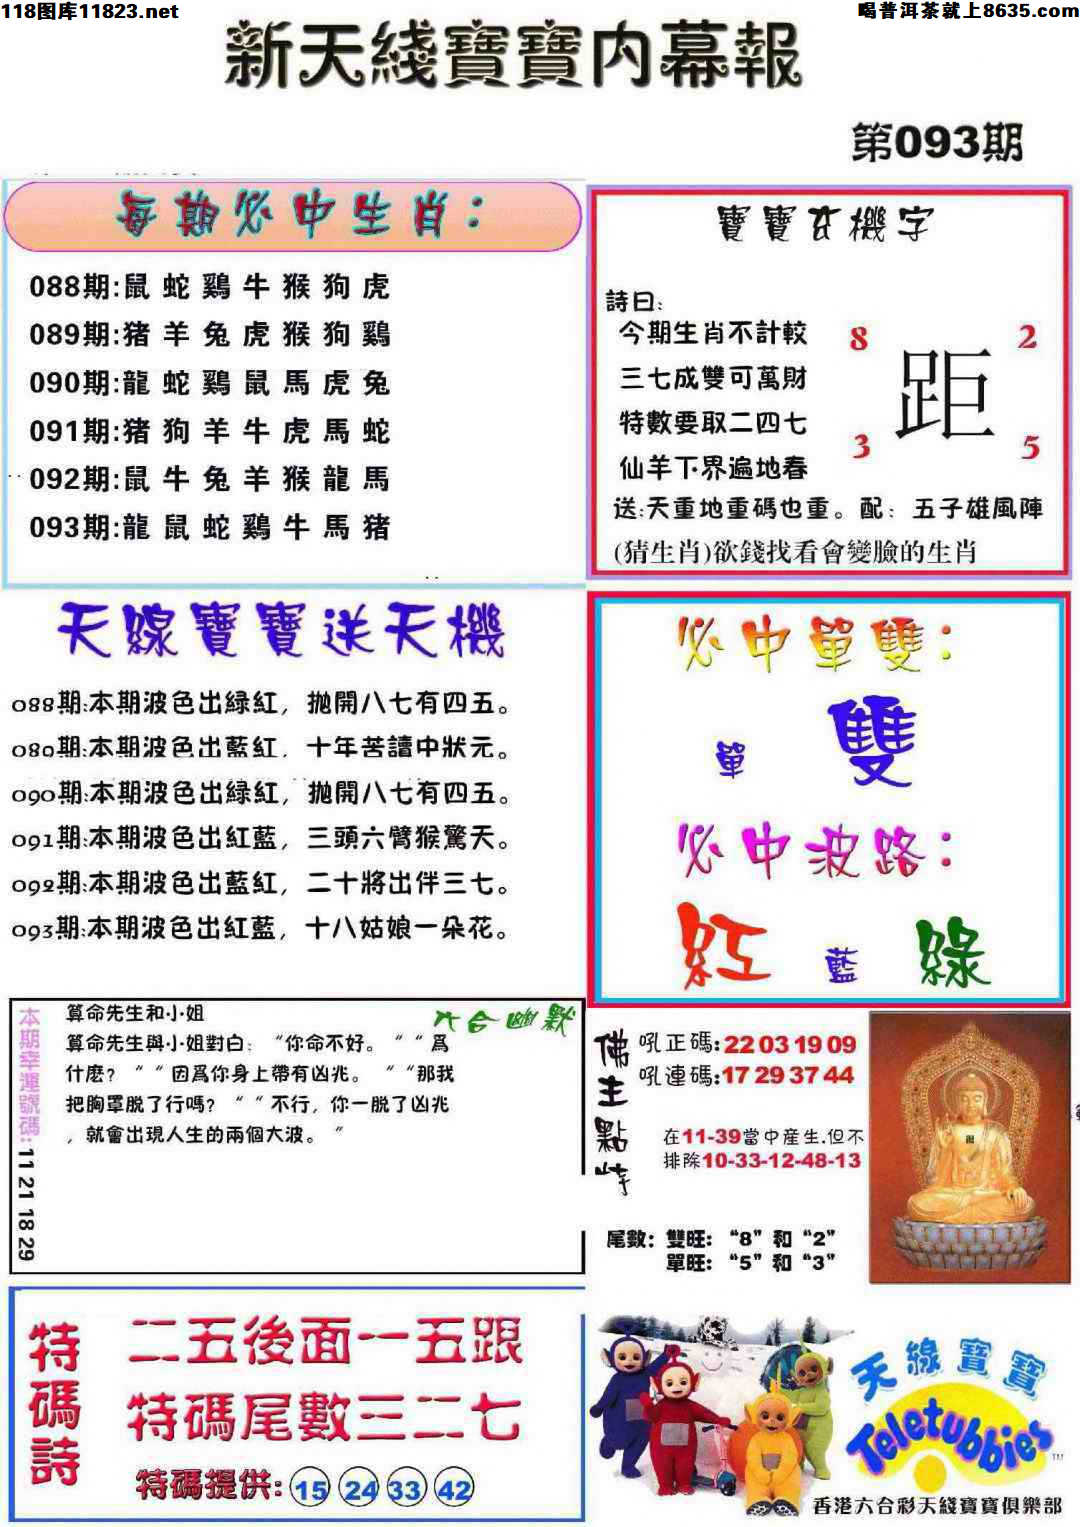 118图库11823.net
喝普洱茶就上8635.com
新天綫寶寶内幕報
第093期
每期必中生肖：
088期:鼠 蛇 鷄 牛 猴 狗 虎
089期:猪 羊 兔 虎 猴 狗 鷄
090期:龍 蛇 鷄 鼠 馬 虎 兔
091期:猪 狗 羊 牛 虎 馬 蛇
092期:鼠 牛 兔 羊 猴 龍 馬
093期:龍 鼠 蛇 鷄 牛 馬 猪
寶寶玄機字
詩曰:
今期生肖不計較
三七成雙可萬財
特數要取二四七
仙羊下界遍地春
8 2
距
3 5
送:天重地重碼也重。配：五子雄風陣
(猜生肖)欲錢找看會變臉的生肖
天線寶寶送天機
088期:本期波色出緑紅，抛開八七有四五。
089期:本期波色出藍紅，十年苦讀中狀元。
090期:本期波色出緑紅，抛開八七有四五。
091期:本期波色出紅藍，三頭六臂猴驚天。
092期:本期波色出藍紅，二十將出伴三七。
093期:本期波色出紅藍，十八姑娘一朵花。
必中單雙：
單 雙
必中波路：
紅 藍 綠
本期幸運號碼:11 21 18 29
六合幽默
算命先生和小姐
算命先生與小姐對白：“你命不好。““爲
什麽？““因爲你身上帶有凶兆。““那我
把胸罩脱了行嗎？““不行，你一脱了凶兆
，就會出現人生的兩個大波。“
佛主點特
吼正碼:22 03 19 09
吼連碼:17 29 37 44
在11-39當中産生.但不
排除10-33-12-48-13
尾數：雙旺：“8”和“2”
單旺：“5”和“3”
特碼詩
二五後面一五跟
特碼尾數三二七
特碼提供: 15 24 33 42
天線寶寶
Teletubbies
TM
香港六合彩天綫寶寶俱樂部